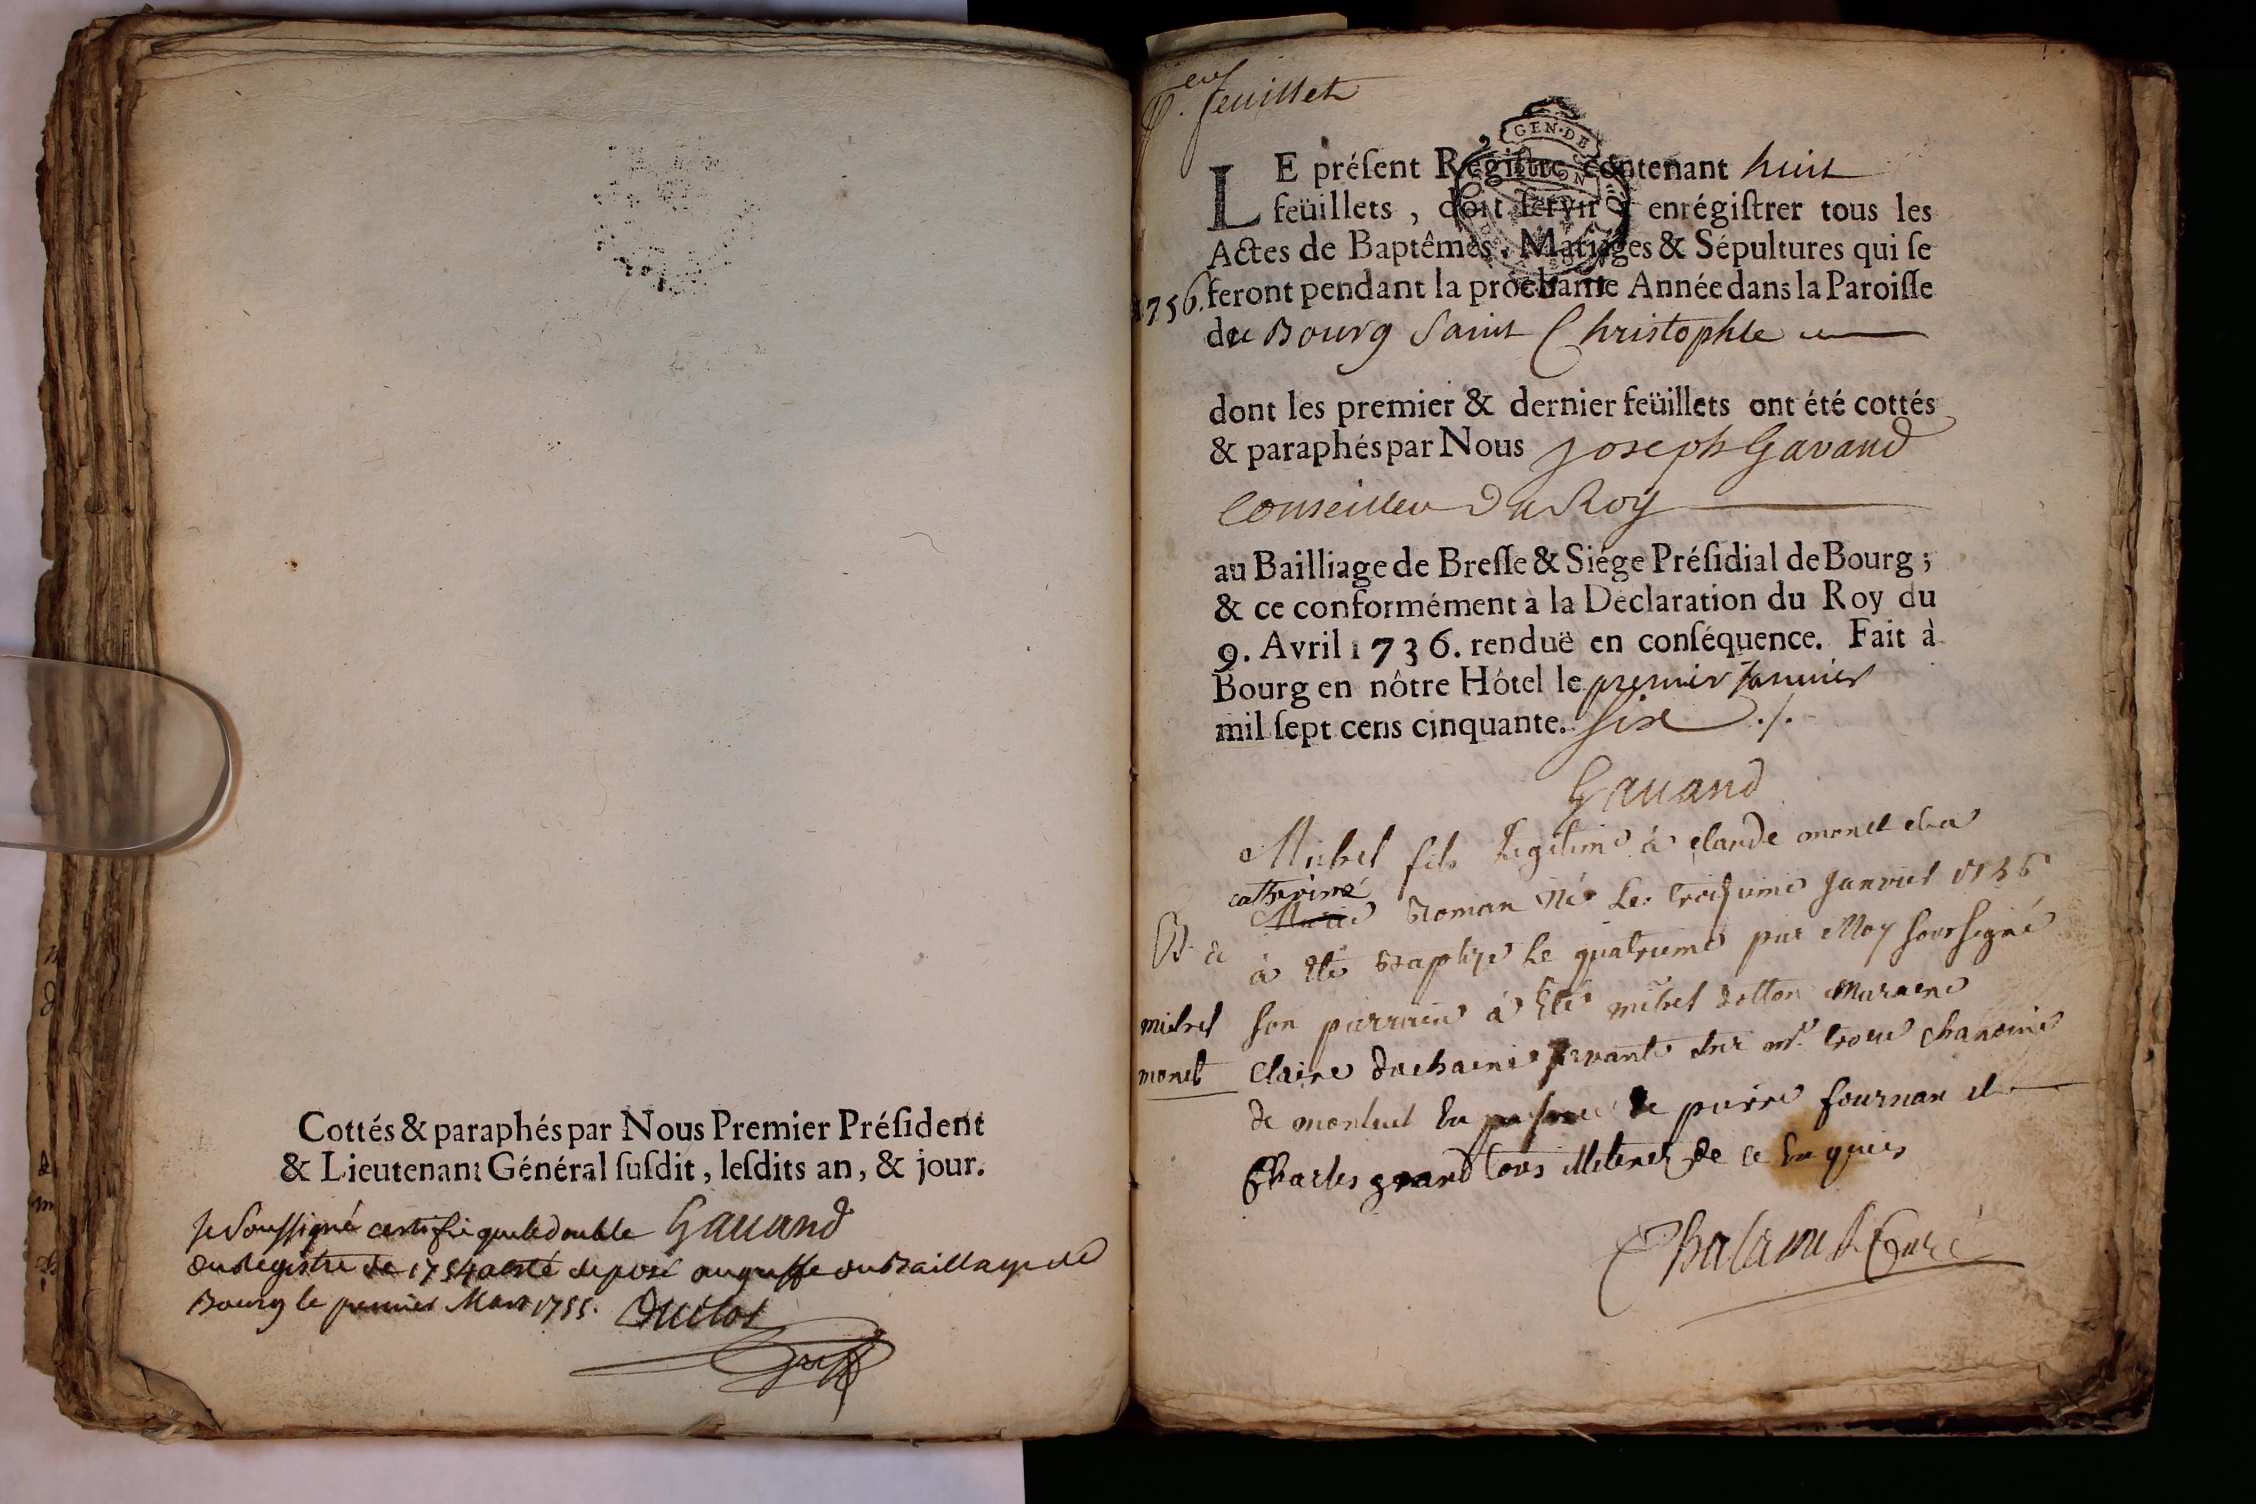 Cottés & paraphés par Nous Premier Présideñt
& Lieutenant Général susdit, lesdits an, & jour.
Je Soussigné certifie que le double Gauand
du Registre de 1754 a esté deposé au greffe du Baillage de
Bourg le premier Mars 1755. Duclos
Greff
P.er feuillet
GEN·DE
LE présent Régistre contenant huit
feüillets, doit servir à enrégistrer tous les
Actes de Baptêmes, Mariages & Sépultures qui se
1756. feront pendant la prochaine Année dans la Paroisse
de Bourg Saint Christophle
dont les premier & dernier feüillets ont été cottés
& paraphés par Nous Joseph Gavand
Conseiller Du Roy
au Bailliage de Bresse & Siége Présidial de Bourg;
& ce conformément à la Déclaration du Roy du
9. Avril 1736. renduë en conséquence. Fait à
Bourg en nôtre Hôtel le premier Januier
mil sept cens cinquante. six ./.
Gauand
Michel fils Legitime à claude monet et a
catherine
Marie Roman Né Le troisieme Janvier 1756
à Eté Baptizé Le quatrieme par Moy soussigné
michel son parrain à Eté michel dotton Maraene
monet Claire duchaine servante chez mr. chanoine
de monluel En presence de pierre fournan et
Charles grand tous de ce Enquis
Curé